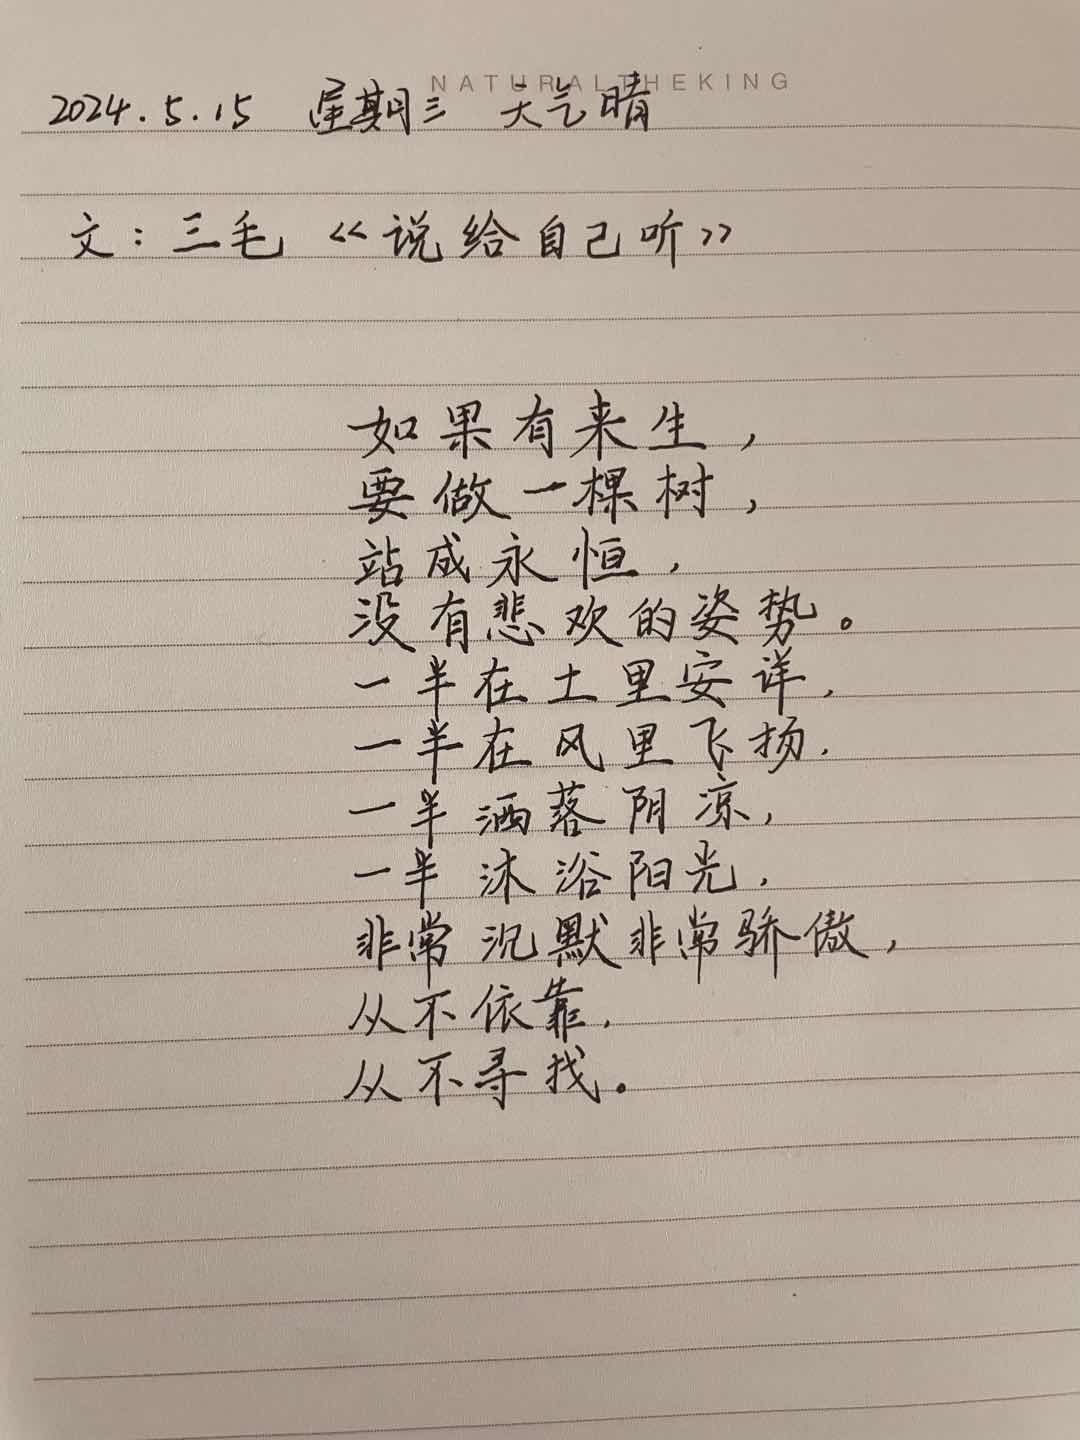 NATURALTHEKING
2024.5.15 星期三 天气晴
文：三毛《说给自己听》
如果有来生，
要做一棵树，
站成永恒，
没有悲欢的姿势。
一半在土里安详，
一半在风里飞扬，
一半洒落阴凉，
一半沐浴阳光，
非常沉默非常骄傲，
从不依靠，
从不寻找。